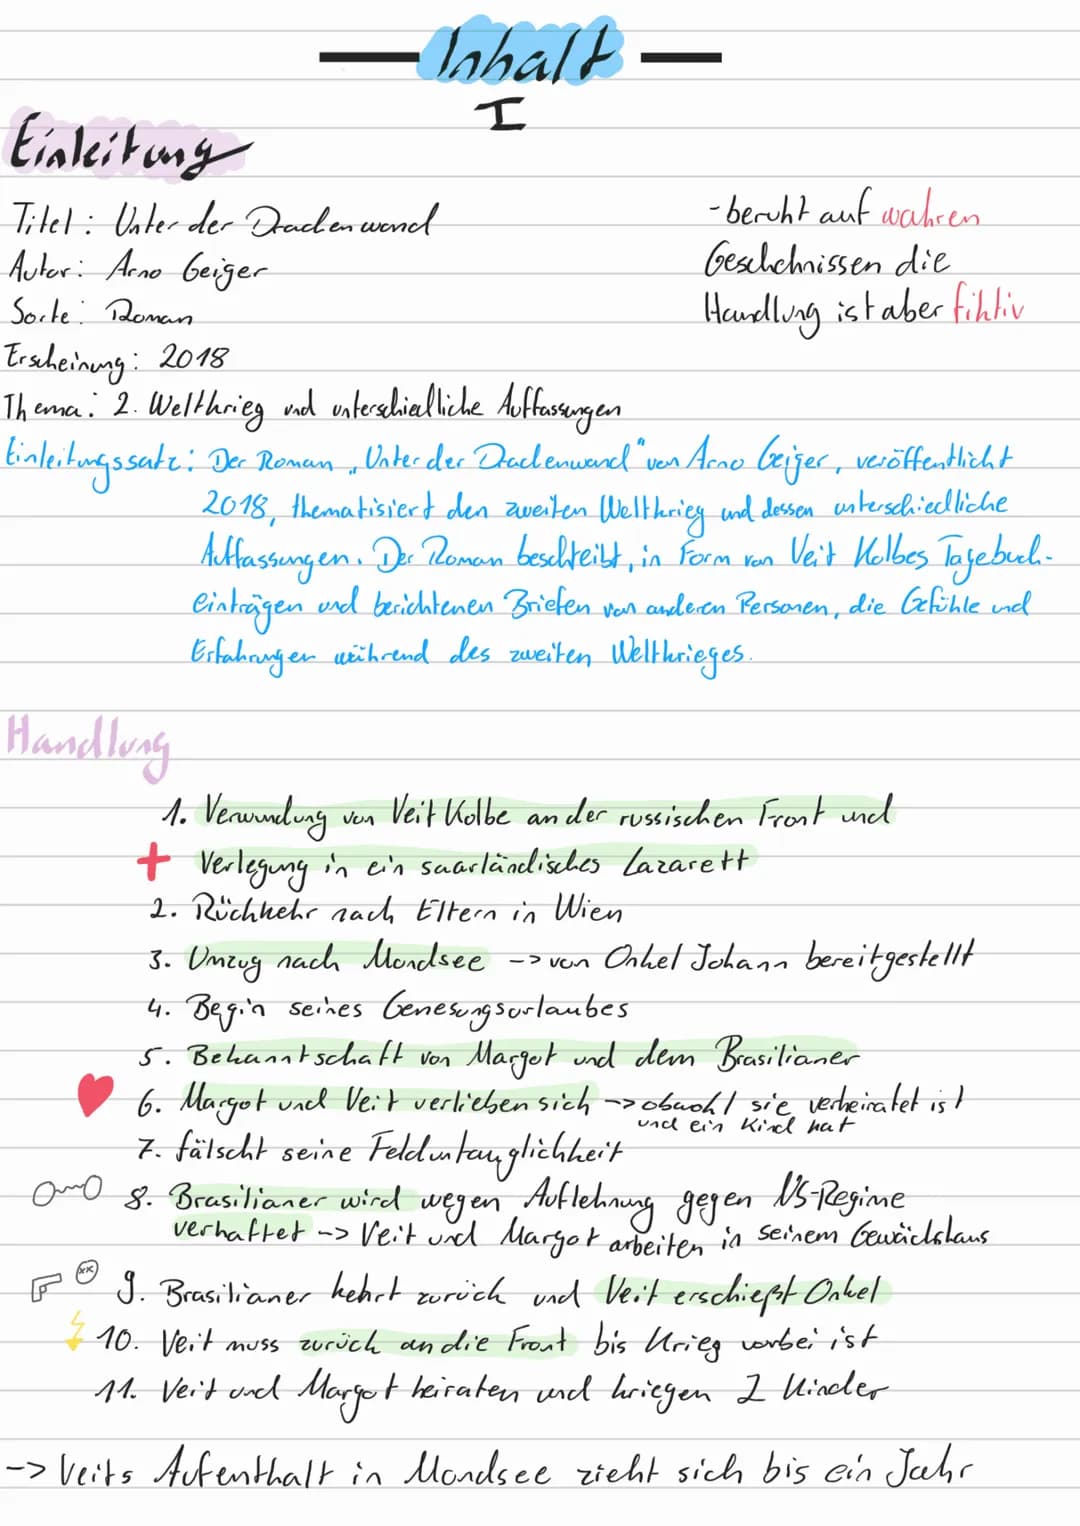 Inhalt
I
Einleitung
Titel: Unter der Drachenwand
Autor: Arno Geiger
Sorte: Roman
Erscheinung: 2018
Thema: 2. Weltkrieg und unterschiedliche Auffassungen
- beruht auf wahren
Geschehnissen die
Handlung ist aber fiktiv
Einleitungssatz: Der Roman „Unter der Drachenwand" von Arno Geiger, veröffentlicht
2018, thematisiert den zweiten Weltkrieg und dessen unterschiedliche
Auffassungen. Der Roman beschreibt, in Form von Veit Kolbes Tagebuch-
einträgen und berichtenen Briefen von anderen Personen, die Gefühle und
Erfahrungen während des zweiten Weltkrieges.
Handlung
1. Verwundung von Veit Kolbe an der russischen Front und
Verlegung in ein saarländisches Lazarett
2. Rückkehr nach Eltern in Wien
3. Umzug nach Mondsee -> von Onkel Johann bereitgestellt
4. Begin seines Genesungsurlaubes
5. Bekanntschaft von Margot und dem Brasilianer
6. Margot und Veit verlieben sich -> obwohl sie verheiratet ist
und ein Kind hat
7. fälscht seine Felduntauglichkeit
8. Brasilianer wird wegen Auflehnung gegen NS-Regime
verhaftet -> Veit und Margot arbeiten in seinem Gewächshaus
9. Brasilianer kehrt zurück und Veit erschießt Onkel
10. Veit muss zurück an die Front bis Krieg vorbei ist
11. Veit und Margot heiraten und kriegen 2 Kinder
-> Veits Aufenthalt in Mondsee zieht sich bis ein Jahr